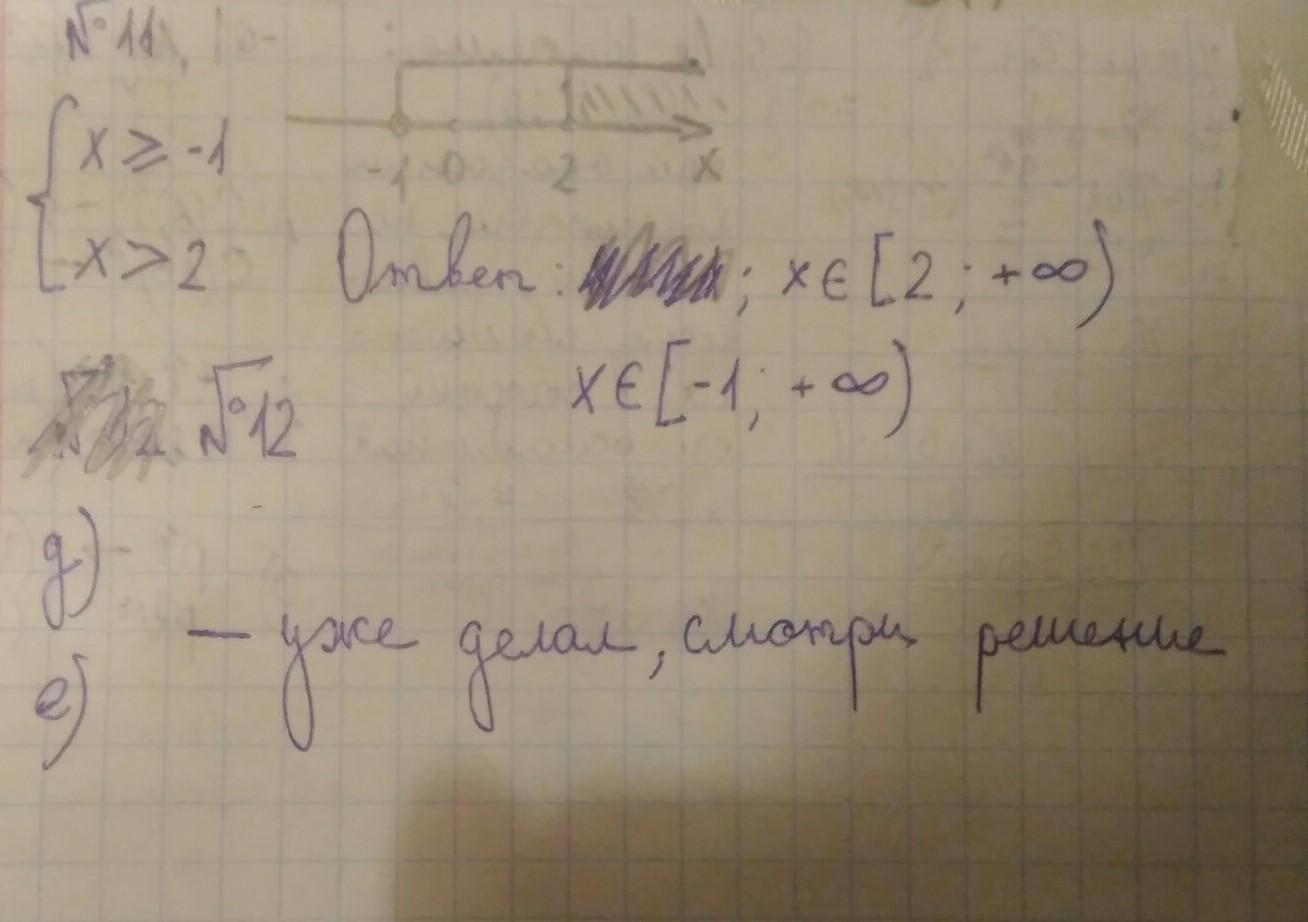 №11
x ≥ -1
-1 0 2 x
x > 2
Ответ: ; x ∈ [2; +∞)
x ∈ [-1; +∞)
№12
д)
— уже делал, смотри решение
е)